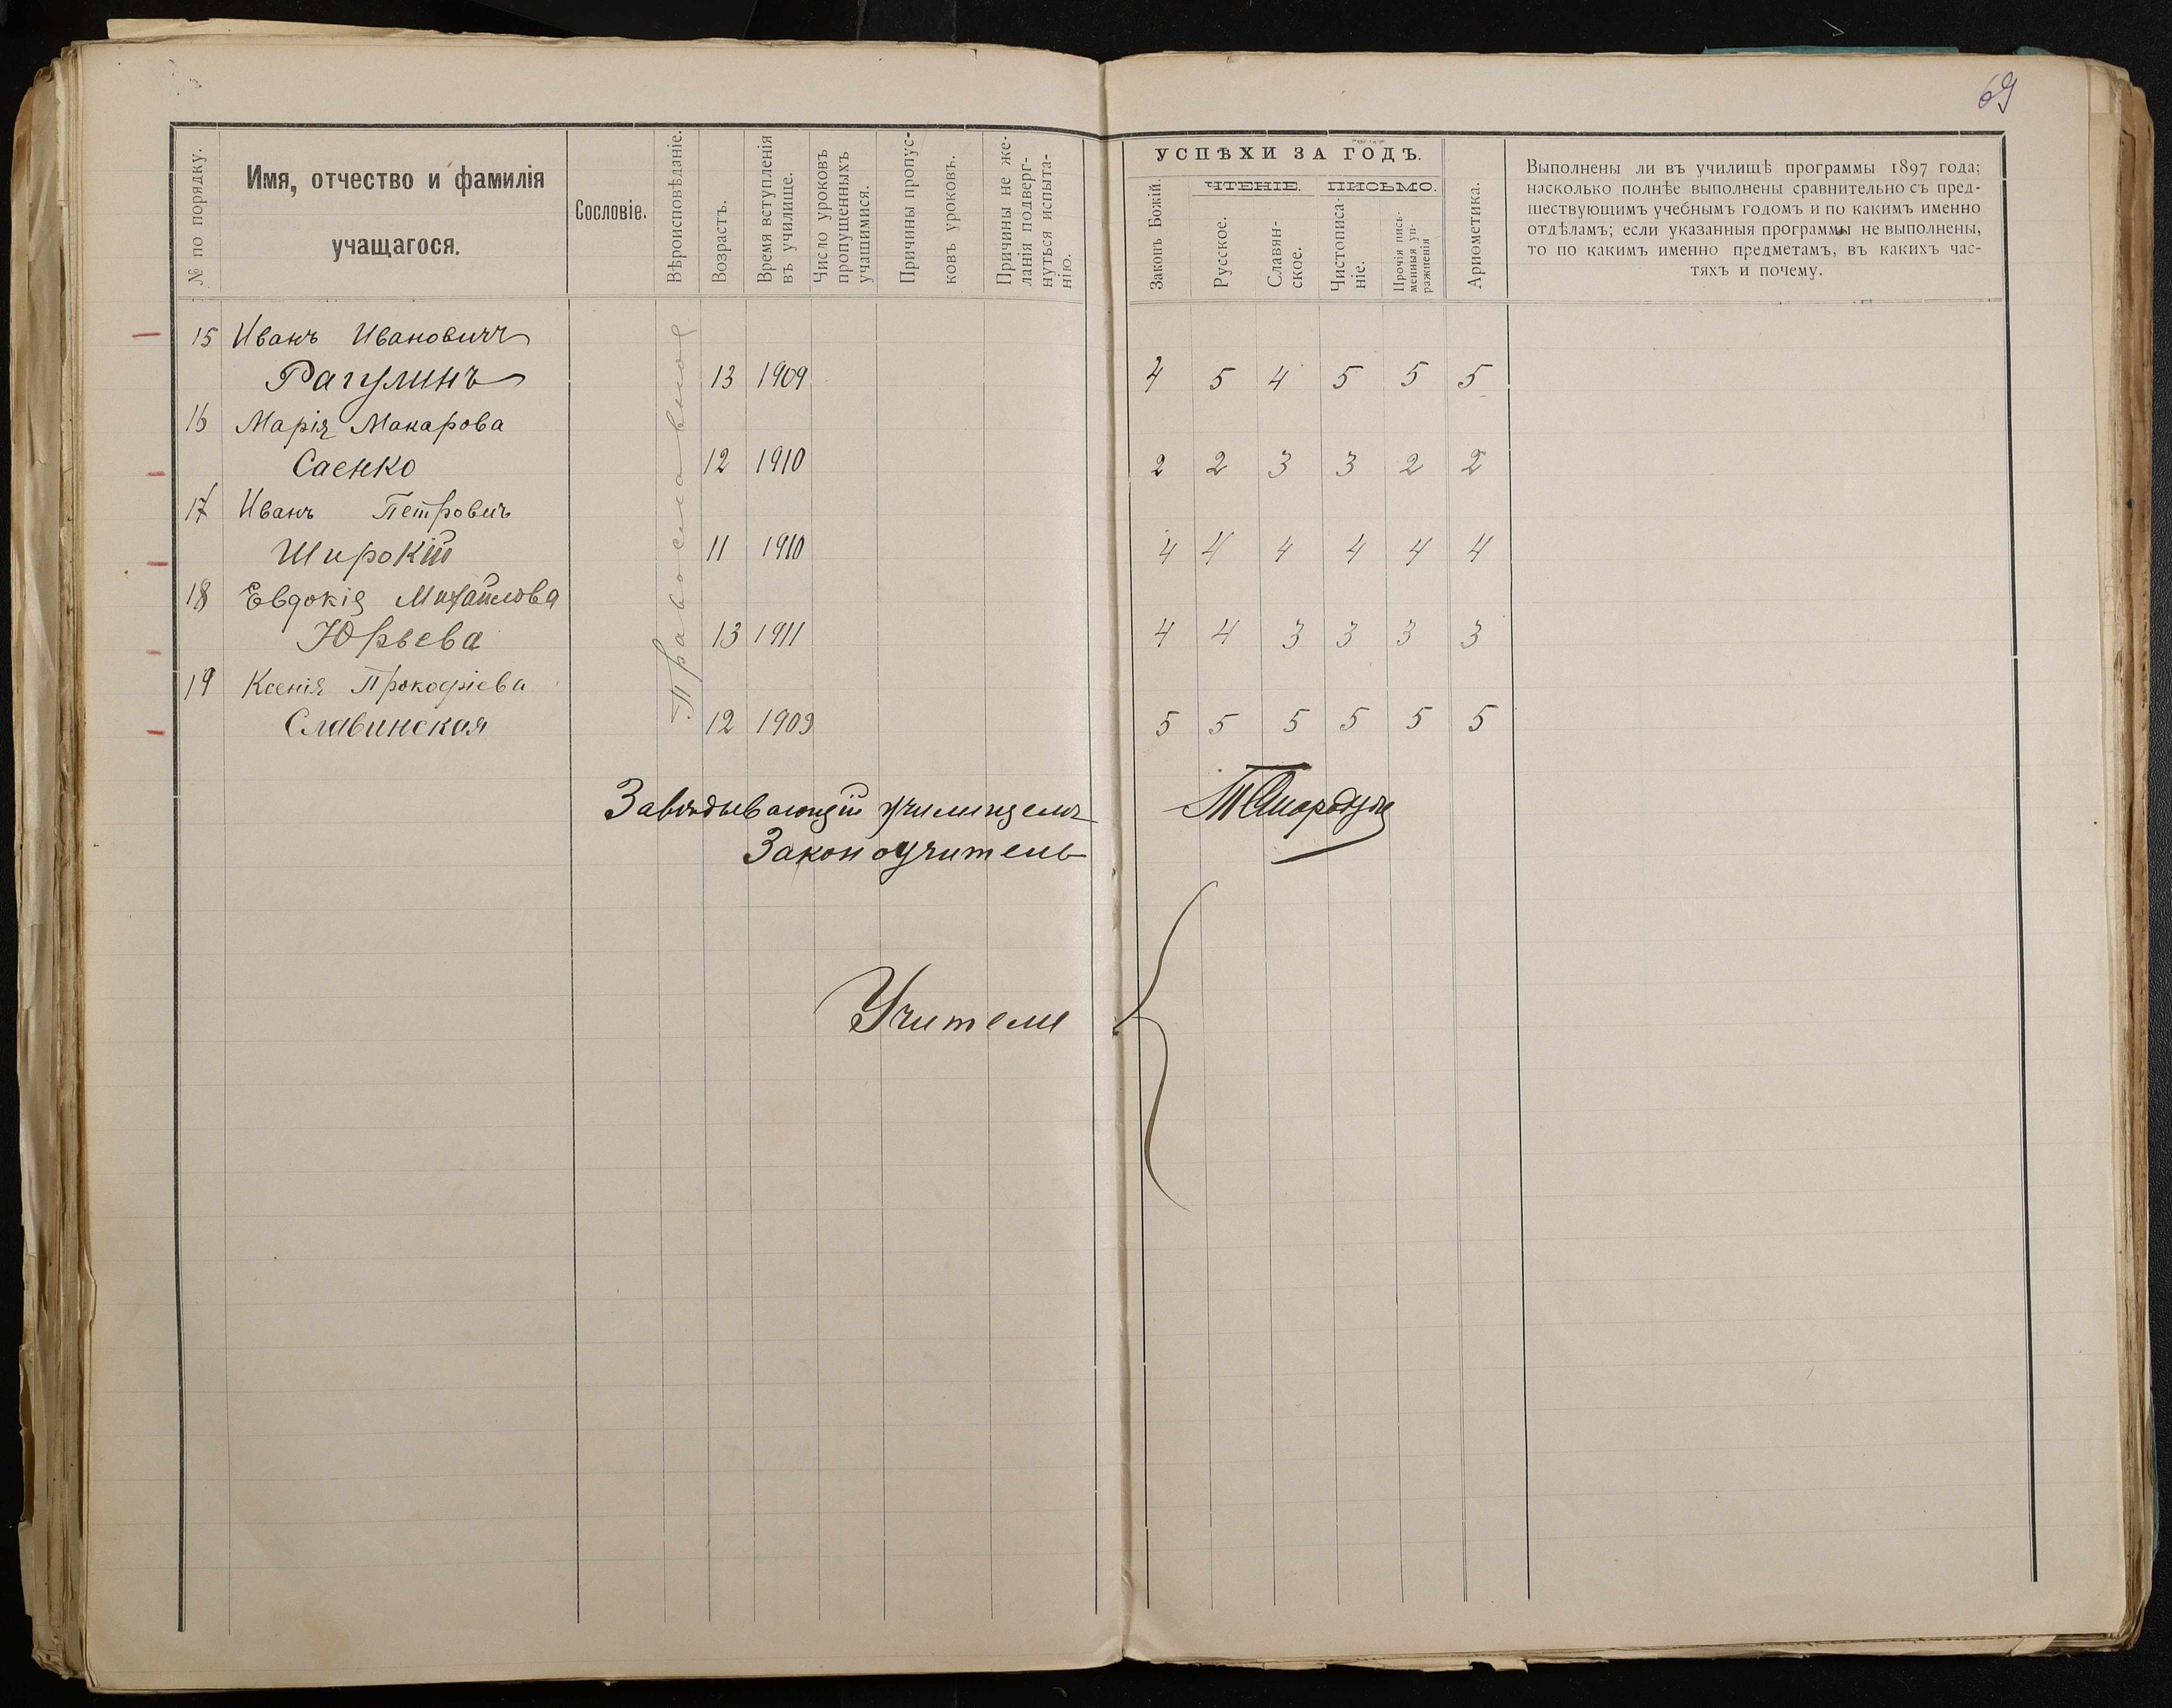 69
№ по порядку.
Имя, отчество и фамилія
учащагося.
Сословіе.
Вѣроисповѣданіе.
Возрастъ.
Время вступленія
въ училище.
Число уроковъ
пропущенныхъ
учащимися.
Причины пропус-
ковъ уроковъ.
Причины не же-
ланія подверг-
нуться испыта-
нію.
УСПѢХИ ЗА ГОДЪ.
Законъ Божій.
ЧТЕНІЕ.
Русское.
Славян-
ское.
ПИСЬМО.
Чистописа-
ніе.
Прочія пись-
менныя уп-
ражненія
Ариѳметика.
Выполнены ли въ училищѣ программы 1897 года;
насколько полнѣе выполнены сравнительно съ пред-
шествующимъ учебнымъ годомъ и по какимъ именно
отдѣламъ; если указанныя программы не выполнены,
то по какимъ именно предметамъ, въ какихъ час-
тяхъ и почему.
Православное
15 Иванъ Ивановичъ
Рагулинъ 13 1909 4 5 4 5 5 5
16 Марія Макарова
Саенко 12 1910 2 2 3 3 2 2
17 Иванъ Петровичъ
Широкій 11 1910 4 4 4 4 4 4
18 Евдокія Михайлова
Юрьева 13 1911 4 4 3 3 3 3
19 Ксенія Прокофіева
Славинская 12 1909 5 5 5 5 5 5
Завѣдывающій училищемъ
Законоучитель
Учители